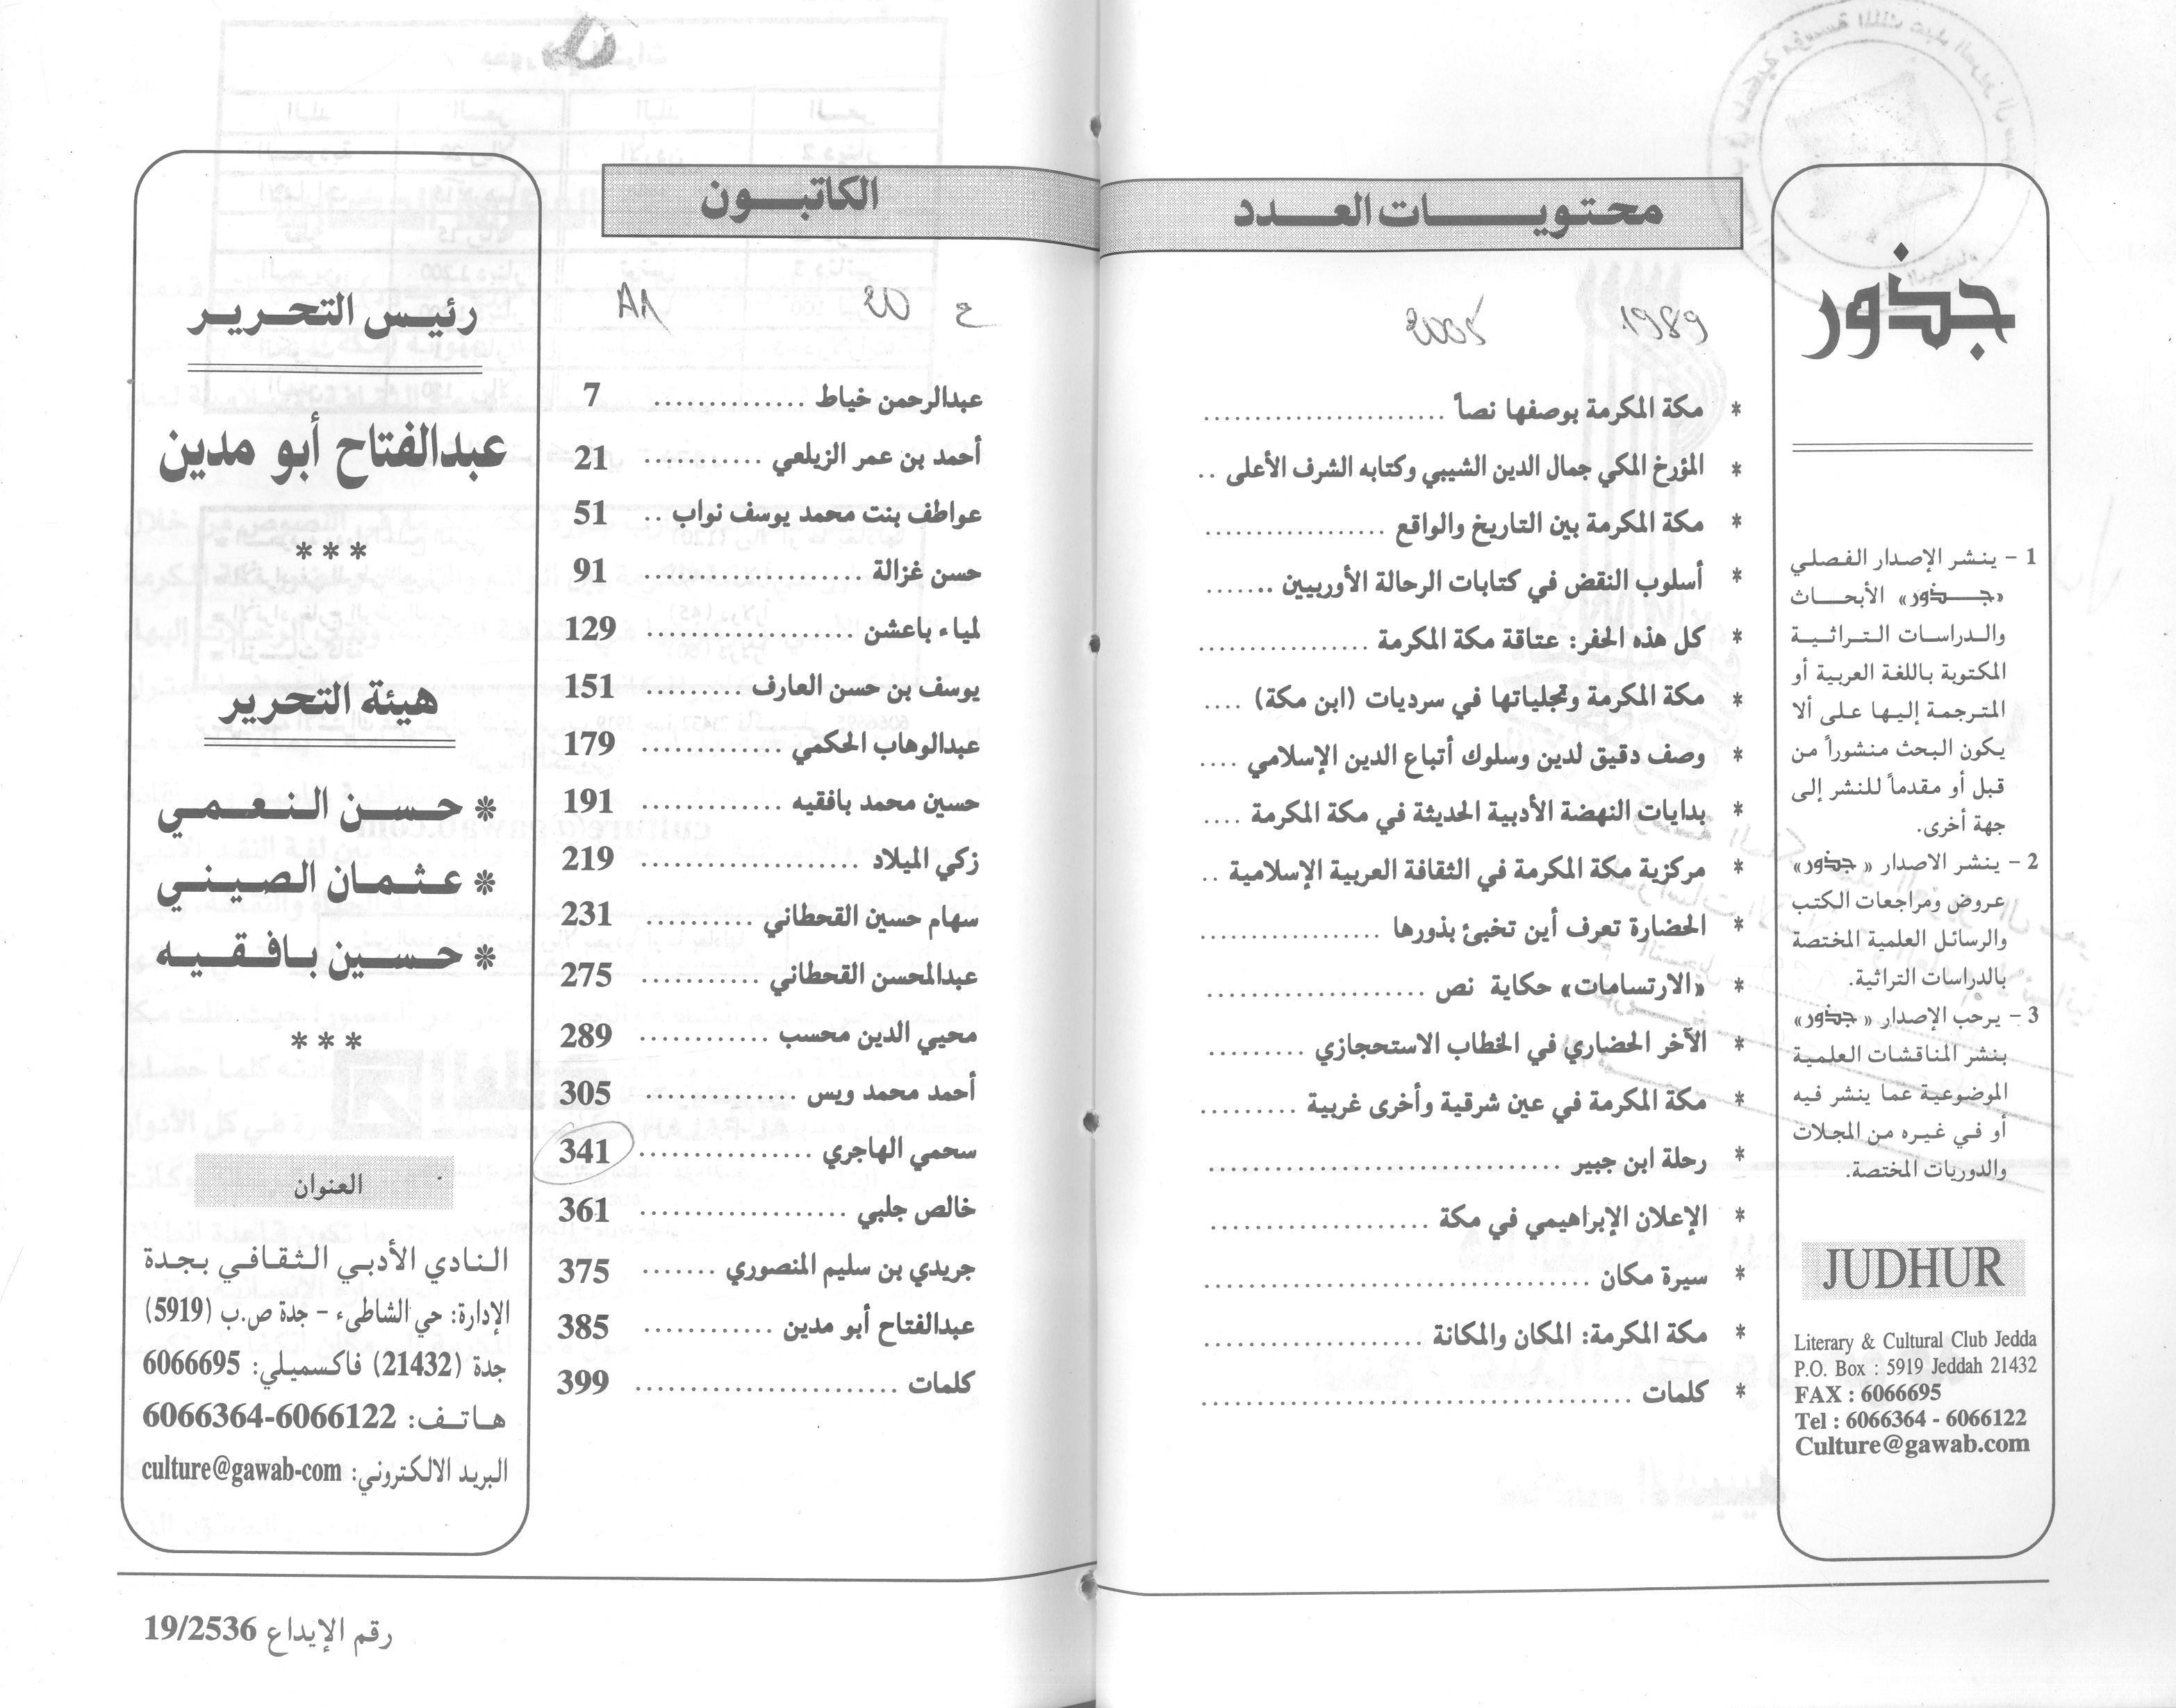 جذور
1 - ينشر الإصدار الفصلي
«جذور» الأبحاث
والدراسات التراثية
المكتوبة باللغة العربية أو
المترجمة إليها على ألا
يكون البحث منشوراً من
قبل أو مقدماً للنشر إلى
جهة أخرى.
2 - ينشر الاصدار « جذور»
عروض ومراجعات الكتب
والرسائل العلمية المختصة
بالدراسات التراثية.
3 - يرحب الإصدار « جذور»
بنشر المناقشات العلمية
الموضوعية عما ينشر فيه
أو في غيره من المجلات
والدوريات المختصة.
JUDHUR
Literary & Cultural Club Jedda
P.O. Box : 5919 Jeddah 21432
FAX : 6066695
Tel : 6066364 - 6066122
Culture@gawab.com
محتويات العدد
1989 2005
* مكة المكرمة بوصفها نصاً ......................
* المؤرخ المكي جمال الدين الشيبي وكتابه الشرف الأعلى ..
* مكة المكرمة بين التاريخ والواقع ................
* أسلوب النقض في كتابات الرحالة الأوربيين .......
* كل هذه الحفر: عتاقة مكة المكرمة ................
* مكة المكرمة وتجلياتها في سرديات (ابن مكة) ....
* وصف دقيق لدين وسلوك أتباع الدين الإسلامي ....
* بدايات النهضة الأدبية الحديثة في مكة المكرمة ....
* مركزية مكة المكرمة في الثقافة العربية الإسلامية ..
* الحضارة تعرف أين تخبئ بذورها .................
* «الارتسامات» حكاية نص ....................
* الآخر الحضاري في الخطاب الاستحجازي .........
* مكة المكرمة في عين شرقية وأخرى غربية .........
* رحلة ابن جبير ................................
* الإعلان الإبراهيمي في مكة ....................
* سيرة مكان ...................................
* مكة المكرمة: المكان والمكانة ....................
* كلمات .......................................
الكاتبون
ع 20
عبدالرحمن خياط .............. 7
أحمد بن عمر الزيلعي ........... 21
عواطف بنت محمد يوسف نواب .. 51
حسن غزالة .................... 91
لمياء باعشن ................... 129
يوسف بن حسن العارف ......... 151
عبدالوهاب الحكمي ............. 179
حسين محمد بافقيه ............. 191
زكي الميلاد .................... 219
سهام حسين القحطاني .......... 231
عبدالمحسن القحطاني ........... 275
محيي الدين محسب ............ 289
أحمد محمد ويس .............. 305
سحمي الهاجري ................ 341
خالص جلبي ................... 361
جريدي بن سليم المنصوري ....... 375
عبدالفتاح أبو مدين ............ 385
كلمات ........................ 399
رئيس التحرير
عبدالفتاح أبو مدين
***
هيئة التحرير
* حسن النعمي
* عثمان الصيني
* حسين بافقيه
***
العنوان
النادي الأدبي الثقافي بجدة
الإدارة: حي الشاطىء - جدة ص.ب (5919)
جدة (21432) فاكسميلي: 6066695
هاتف: 6066122-6066364
البريد الالكتروني: culture@gawab-com
رقم الإيداع 19/2536